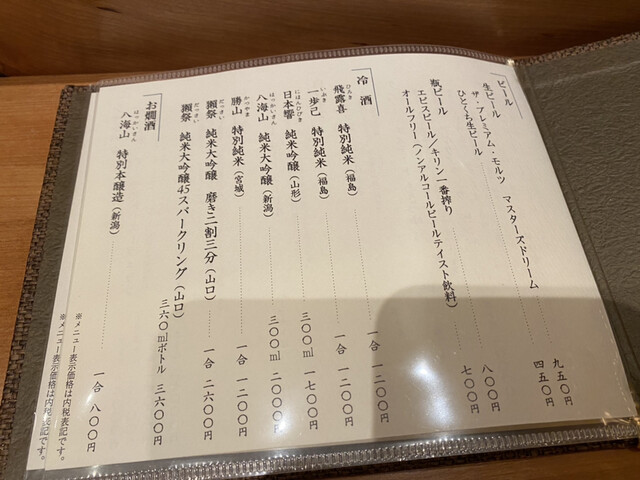 ビール
生ビール
ザ・プレミアム・モルツ マスターズドリーム 九五〇円
ひとくち生ビール 四五〇円
瓶ビール
エビスビール／キリン一番搾り 八〇〇円
オールフリー（ノンアルコールビールテイスト飲料） 七〇〇円
冷酒
飛露喜 特別純米（福島） 一合 一二〇〇円
一歩己 特別純米（福島）
日本響 純米吟醸（山形） 三〇〇ml 一七〇〇円
八海山 純米大吟醸（新潟） 三〇〇ml 二〇〇〇円
勝山 特別純米（宮城） 一合 一二〇〇円
獺祭 純米大吟醸 磨き二割三分（山口） 一合 二六〇〇円
獺祭 純米大吟醸45スパークリング（山口） 三六〇mlボトル 三六〇〇円
お燗酒
八海山 特別本醸造（新潟） 一合 八〇〇円
※メニュー表示価格は内税表記です。
※メニュー表示価格は内税表記です。